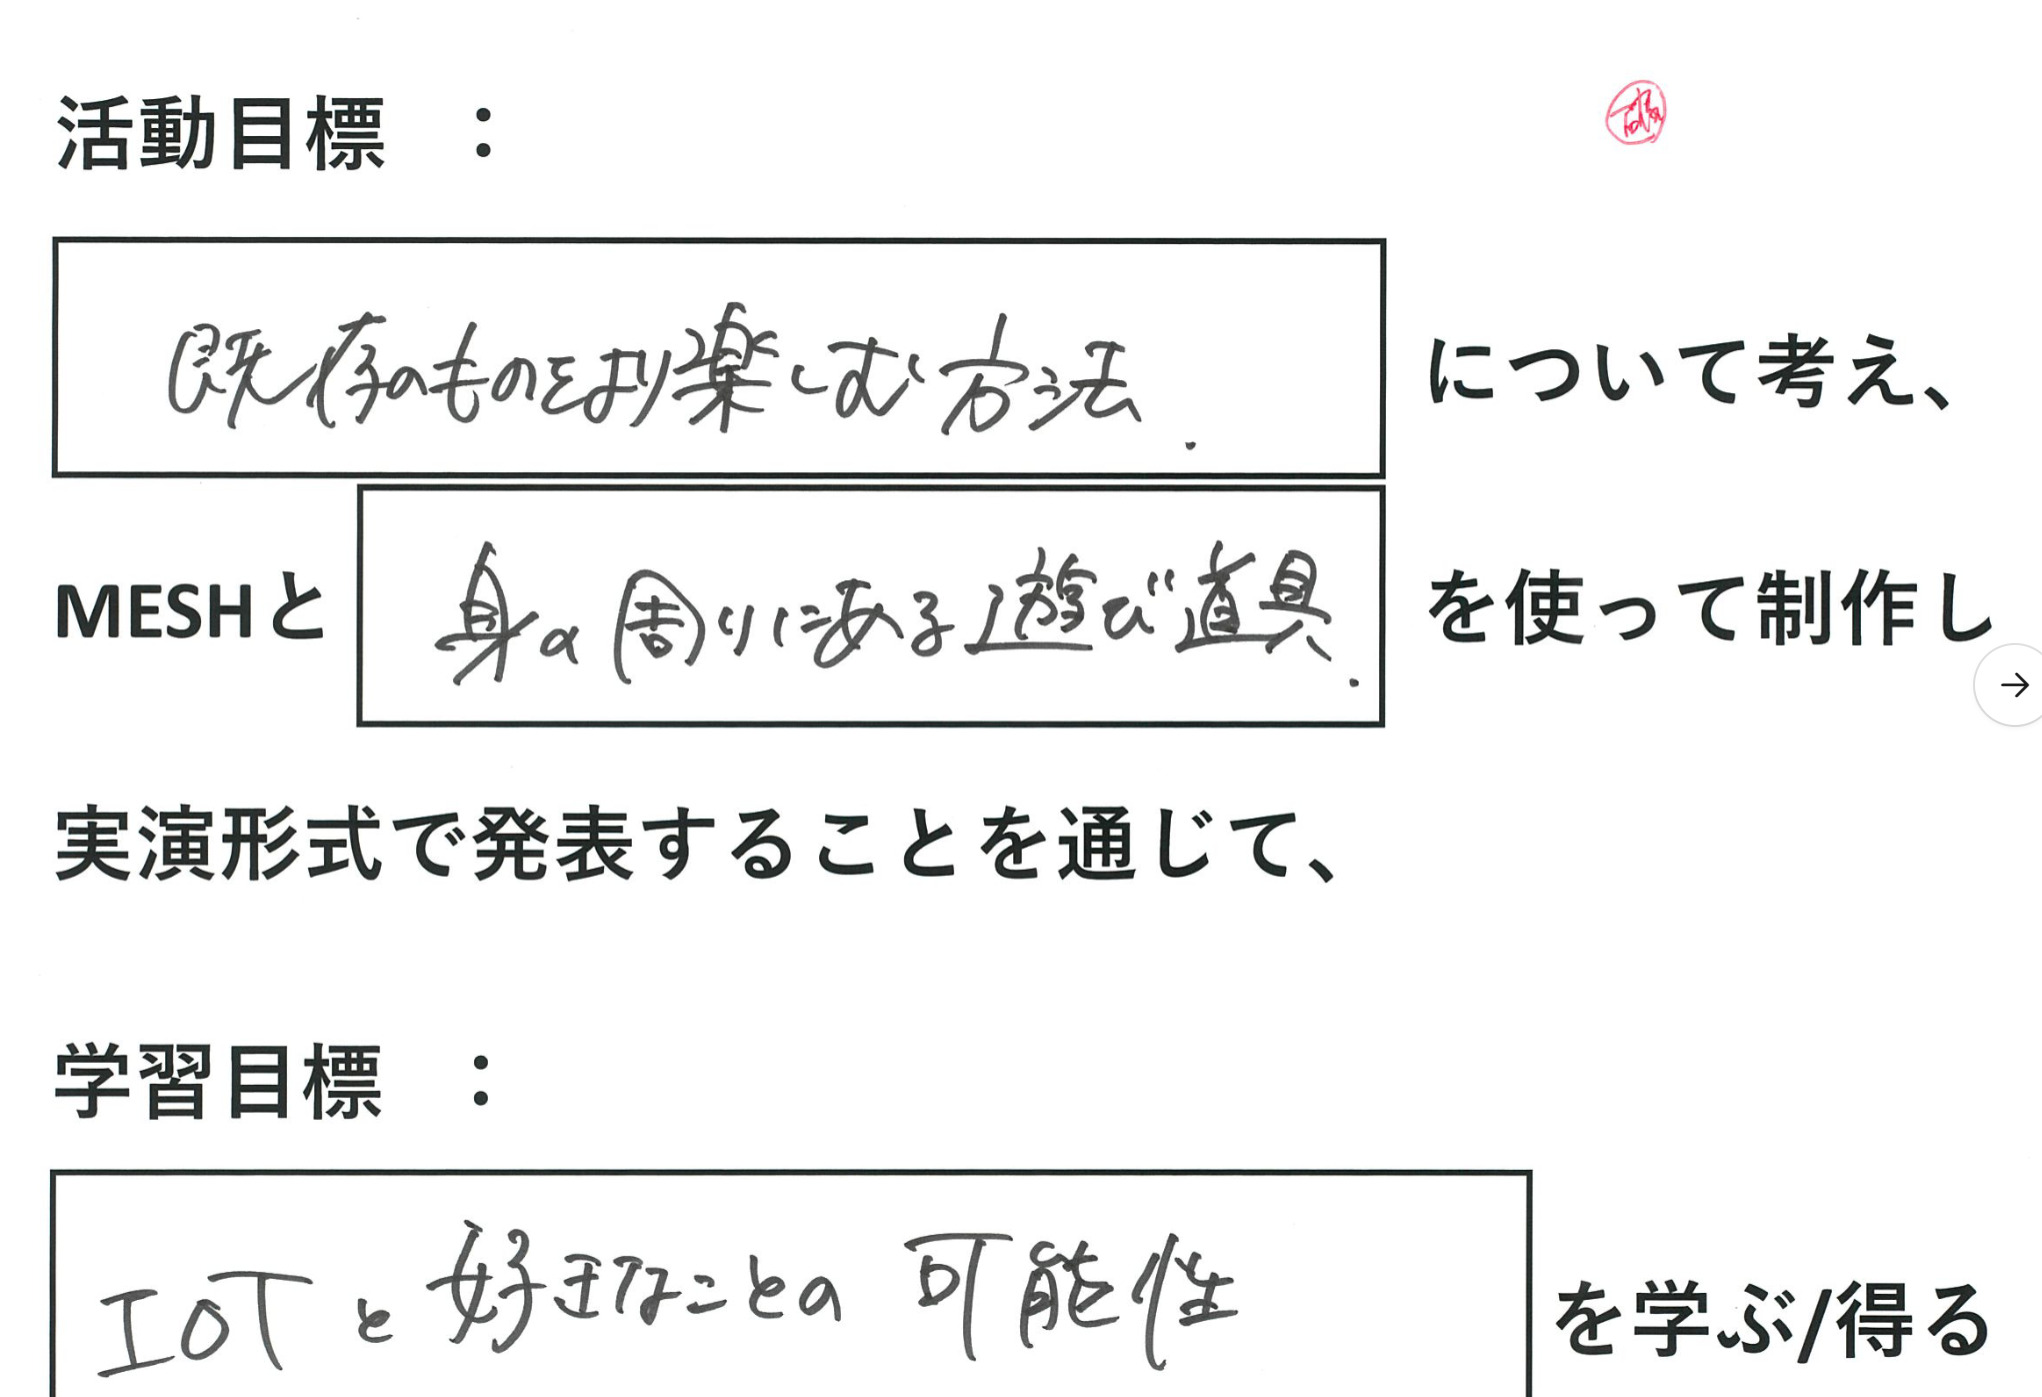 活動目標 :
既存のものをより楽しむ方法. について考え、
MESHと 身の周りにある遊び道具. を使って制作し
実演形式で発表することを通じて、
学習目標 :
IoTと好きなことの可能性 を学ぶ/得る